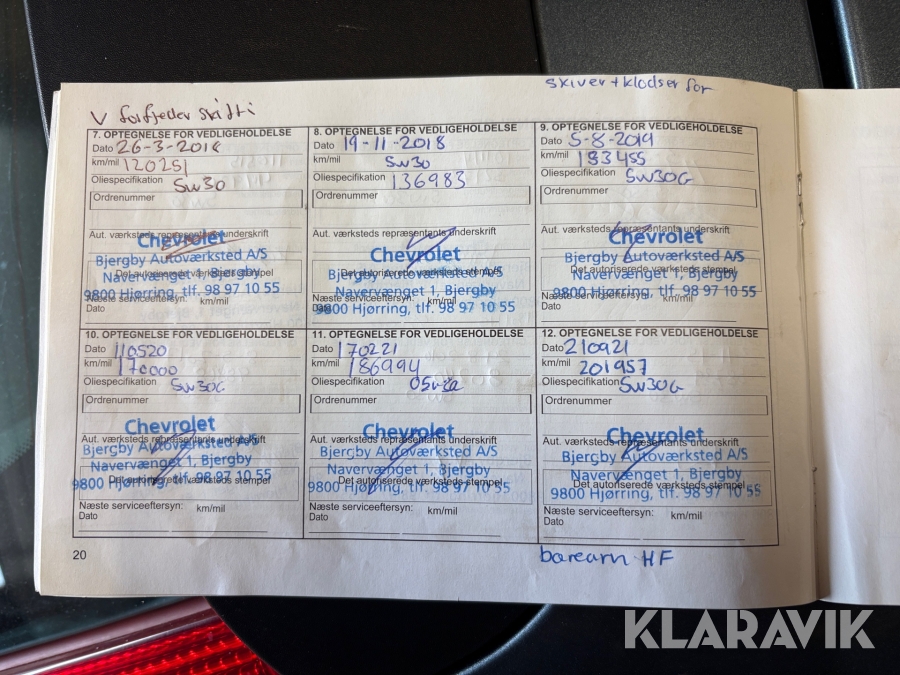 skiver + klodser for
V forfjeder skift
7. OPTEGNELSE FOR VEDLIGEHOLDELSE
Dato 26-3-2018
km/mil 120251
Oliespecifikation 5W30
Ordrenummer
Aut. værksteds repræsentants underskrift
Chevrolet
Bjergby Autoværksted A/S
Det autoriserede værksteds stempel
Navervænget 1, Bjergby
9800 Hjørring, tlf. 98 97 10 55
Næste serviceeftersyn: km/mil
Dato
8. OPTEGNELSE FOR VEDLIGEHOLDELSE
Dato 19-11-2018
km/mil 5W30
Oliespecifikation 136983
Ordrenummer
Aut. værksteds repræsentants underskrift
Chevrolet
Det autoriserede værksteds stempel
Bjergby Autoværksted A/S
Navervænget 1, Bjergby
Næste serviceeftersyn: km/mil
9800 Hjørring, tlf. 98 97 10 55
Dato
9. OPTEGNELSE FOR VEDLIGEHOLDELSE
Dato 5-8-2019
km/mil 153455
Oliespecifikation 5W30G
Ordrenummer
Aut. værksteds repræsentants underskrift
Chevrolet
Bjergby Autoværksted A/S
Det autoriserede værksteds stempel
Navervænget 1, Bjergby
9800 Hjørring, tlf. 98 97 10 55
Næste serviceeftersyn: km/mil
Dato
10. OPTEGNELSE FOR VEDLIGEHOLDELSE
Dato 110520
km/mil 170000
Oliespecifikation 5W30G
Ordrenummer
Chevrolet
Aut. værksteds repræsentants underskrift
Bjergby Autoværksted A/S
Navervænget 1, Bjergby
Det autoriserede værksteds stempel
9800 Hjørring, tlf. 98 97 10 55
Næste serviceeftersyn: km/mil
Dato
11. OPTEGNELSE FOR VEDLIGEHOLDELSE
Dato 170221
km/mil 186994
Oliespecifikation
Ordrenummer
Chevrolet
Aut. værksteds repræsentants underskrift
Bjergby Autoværksted A/S
Navervænget 1, Bjergby
Det autoriserede værksteds stempel
9800 Hjørring, tlf. 98 97 10 55
Næste serviceeftersyn: km/mil
Dato
12. OPTEGNELSE FOR VEDLIGEHOLDELSE
Dato 210921
km/mil 201957
Oliespecifikation 5W30G
Ordrenummer
Chevrolet
Aut. værksteds repræsentants underskrift
Bjergby Autoværksted A/S
Navervænget 1, Bjergby
Det autoriserede værksteds stempel
9800 Hjørring, tlf. 98 97 10 55
Næste serviceeftersyn: km/mil
Dato
20
bærearm HF
KLARAVIK